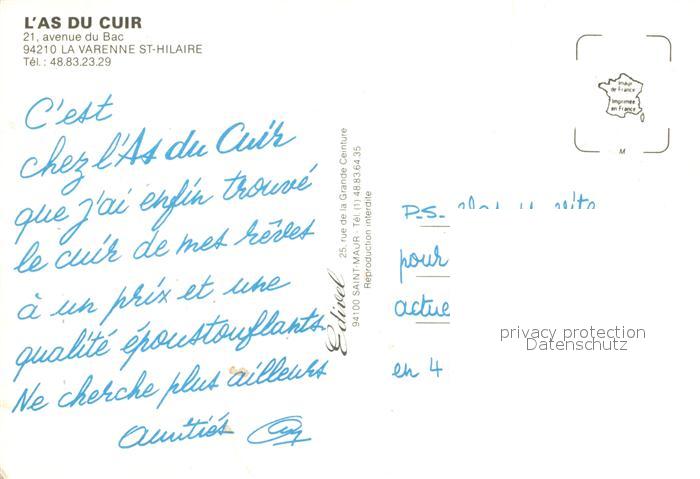 L'AS DU CUIR
21, avenue du Bac
94210 LA VARENNE ST-HILAIRE
Tél. : 48.83.23.29
C'est
chez l'As du Cuir
que j'ai enfin trouvé
le cuir de mes rêves
à un prix et une
qualité époustouflants.
Ne cherche plus ailleurs
Amitiés
Edivel
25, rue de la Grande Ceinture
94100 SAINT-MAUR - Tél. (1) 48.83.64.35
Reproduction interdite
Image
de France
Imprimée
en France
M
P.S. vite
pour
actue
en 4
privacy protection
Datenschutz